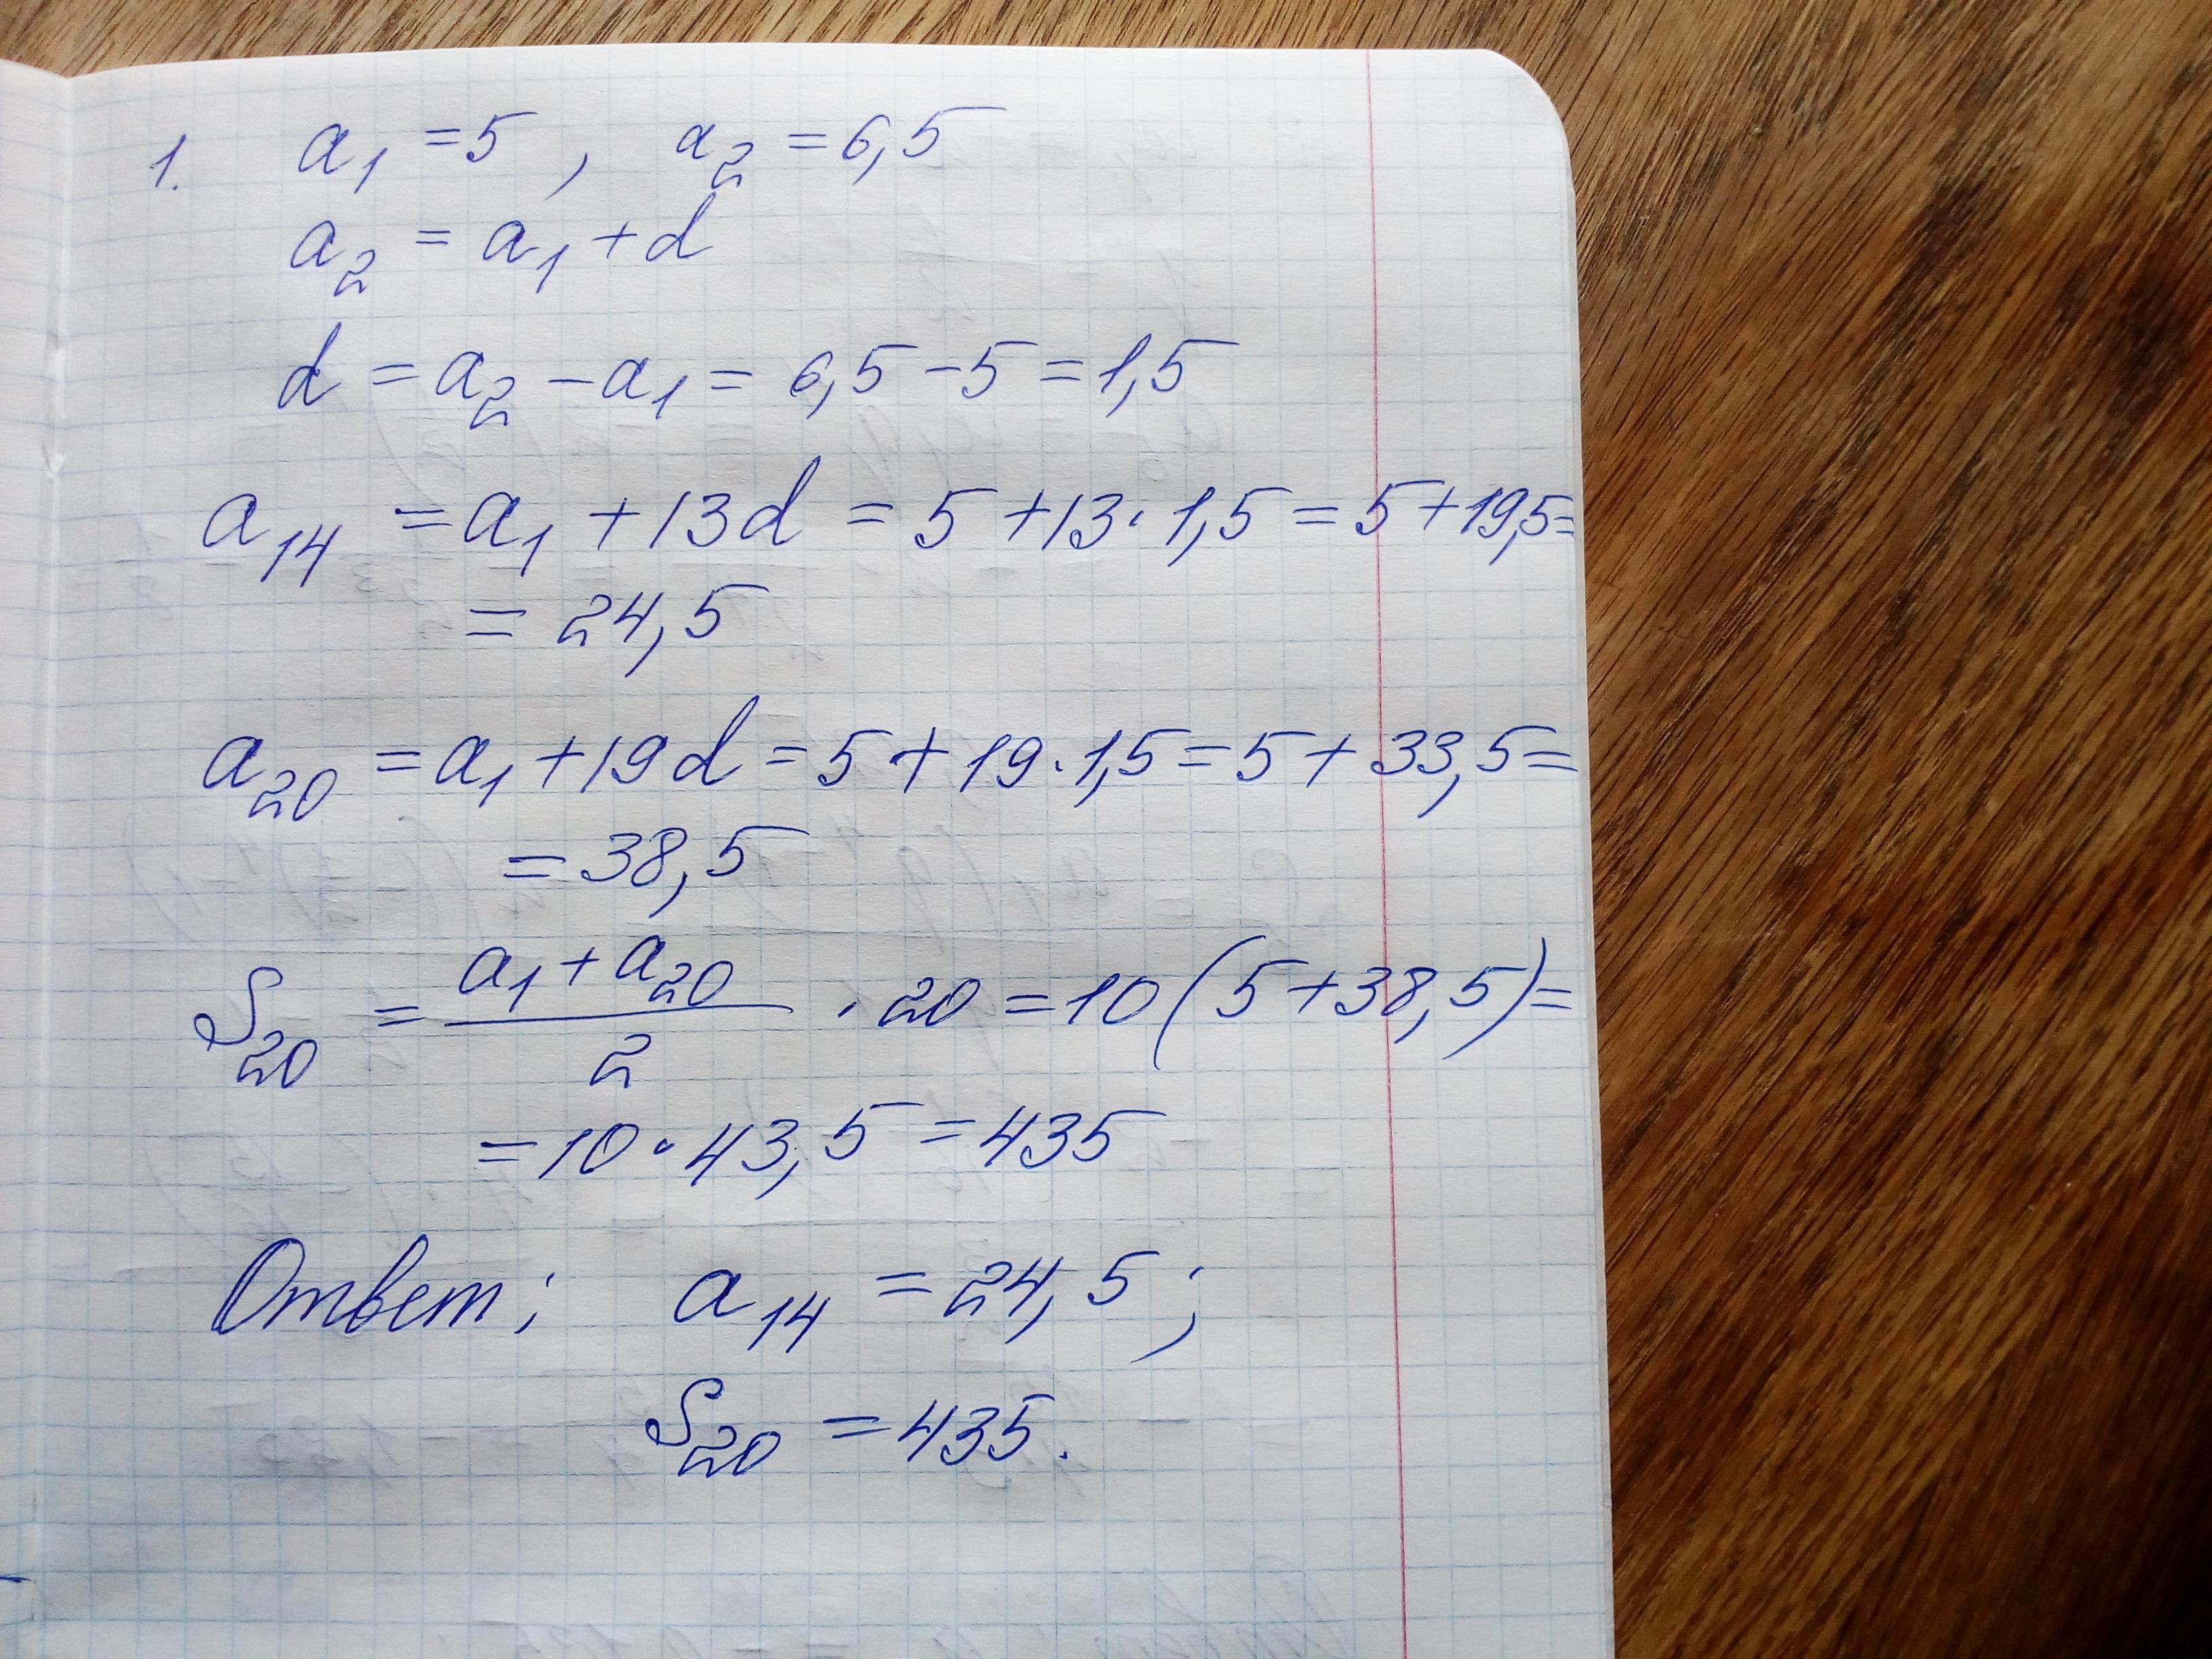 1. a₁ = 5, a₂ = 6,5
a₂ = a₁ + d
d = a₂ - a₁ = 6,5 - 5 = 1,5
a₁₄ = a₁ + 13d = 5 + 13 · 1,5 = 5 + 19,5 =
= 24,5
a₂₀ = a₁ + 19d = 5 + 19 · 1,5 = 5 + 33,5 =
= 38,5
S₂₀ = (a₁ + a₂₀)/2 · 20 = 10(5 + 38,5) =
= 10 · 43,5 = 435
Ответ: a₁₄ = 24,5;
S₂₀ = 435.